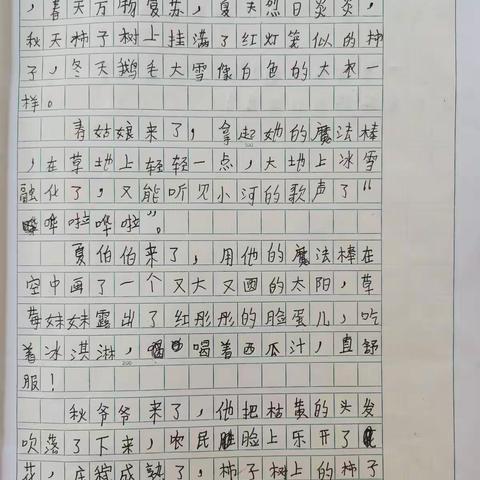 ，春天万物复苏，夏天烈日炎炎，
秋天柿子树上挂满了红灯笼似的柿
子，冬天鹅毛大雪像白色的大衣一
样。
春姑娘来了，拿起她的魔法棒
，在草地上轻轻一点，大地上冰雪
融化了，又能听见小河的歌声了“
哗啦哗啦”。
夏伯伯来了，用他的魔法棒在
空中画了一个又大又圆的太阳，草
莓妹妹露出了红彤彤的脸蛋儿，吃
着冰淇淋，喝着西瓜汁，真舒
服！
秋爷爷来了，他把枯黄的头发
吹落了下来，农民脸上乐开了
花，庄稼成熟了，柿子树上的柿子